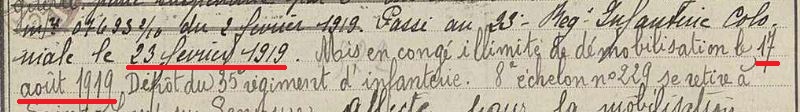 du 2 février 1919. Passé au 23e Reg. Infanterie Colo-
niale le 23 février 1919. Mis en congé illimité de démobilisation le 17
août 1919, Dépôt du 35e régiment d'infanterie. 8e échelon no 229 se retire à
affecté pour la mobilisation